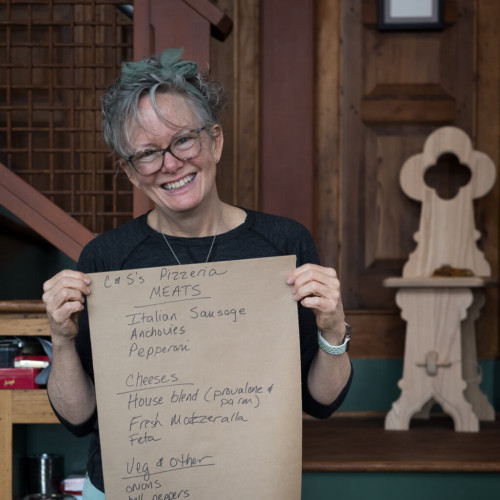 C & S's Pizzeria
MEATS
Italian Sausage
Anchovies
Pepperoni
Cheeses
House blend (provalone &
parm)
Fresh Motzeralla
Feta
Veg & other
onions
bell peppers